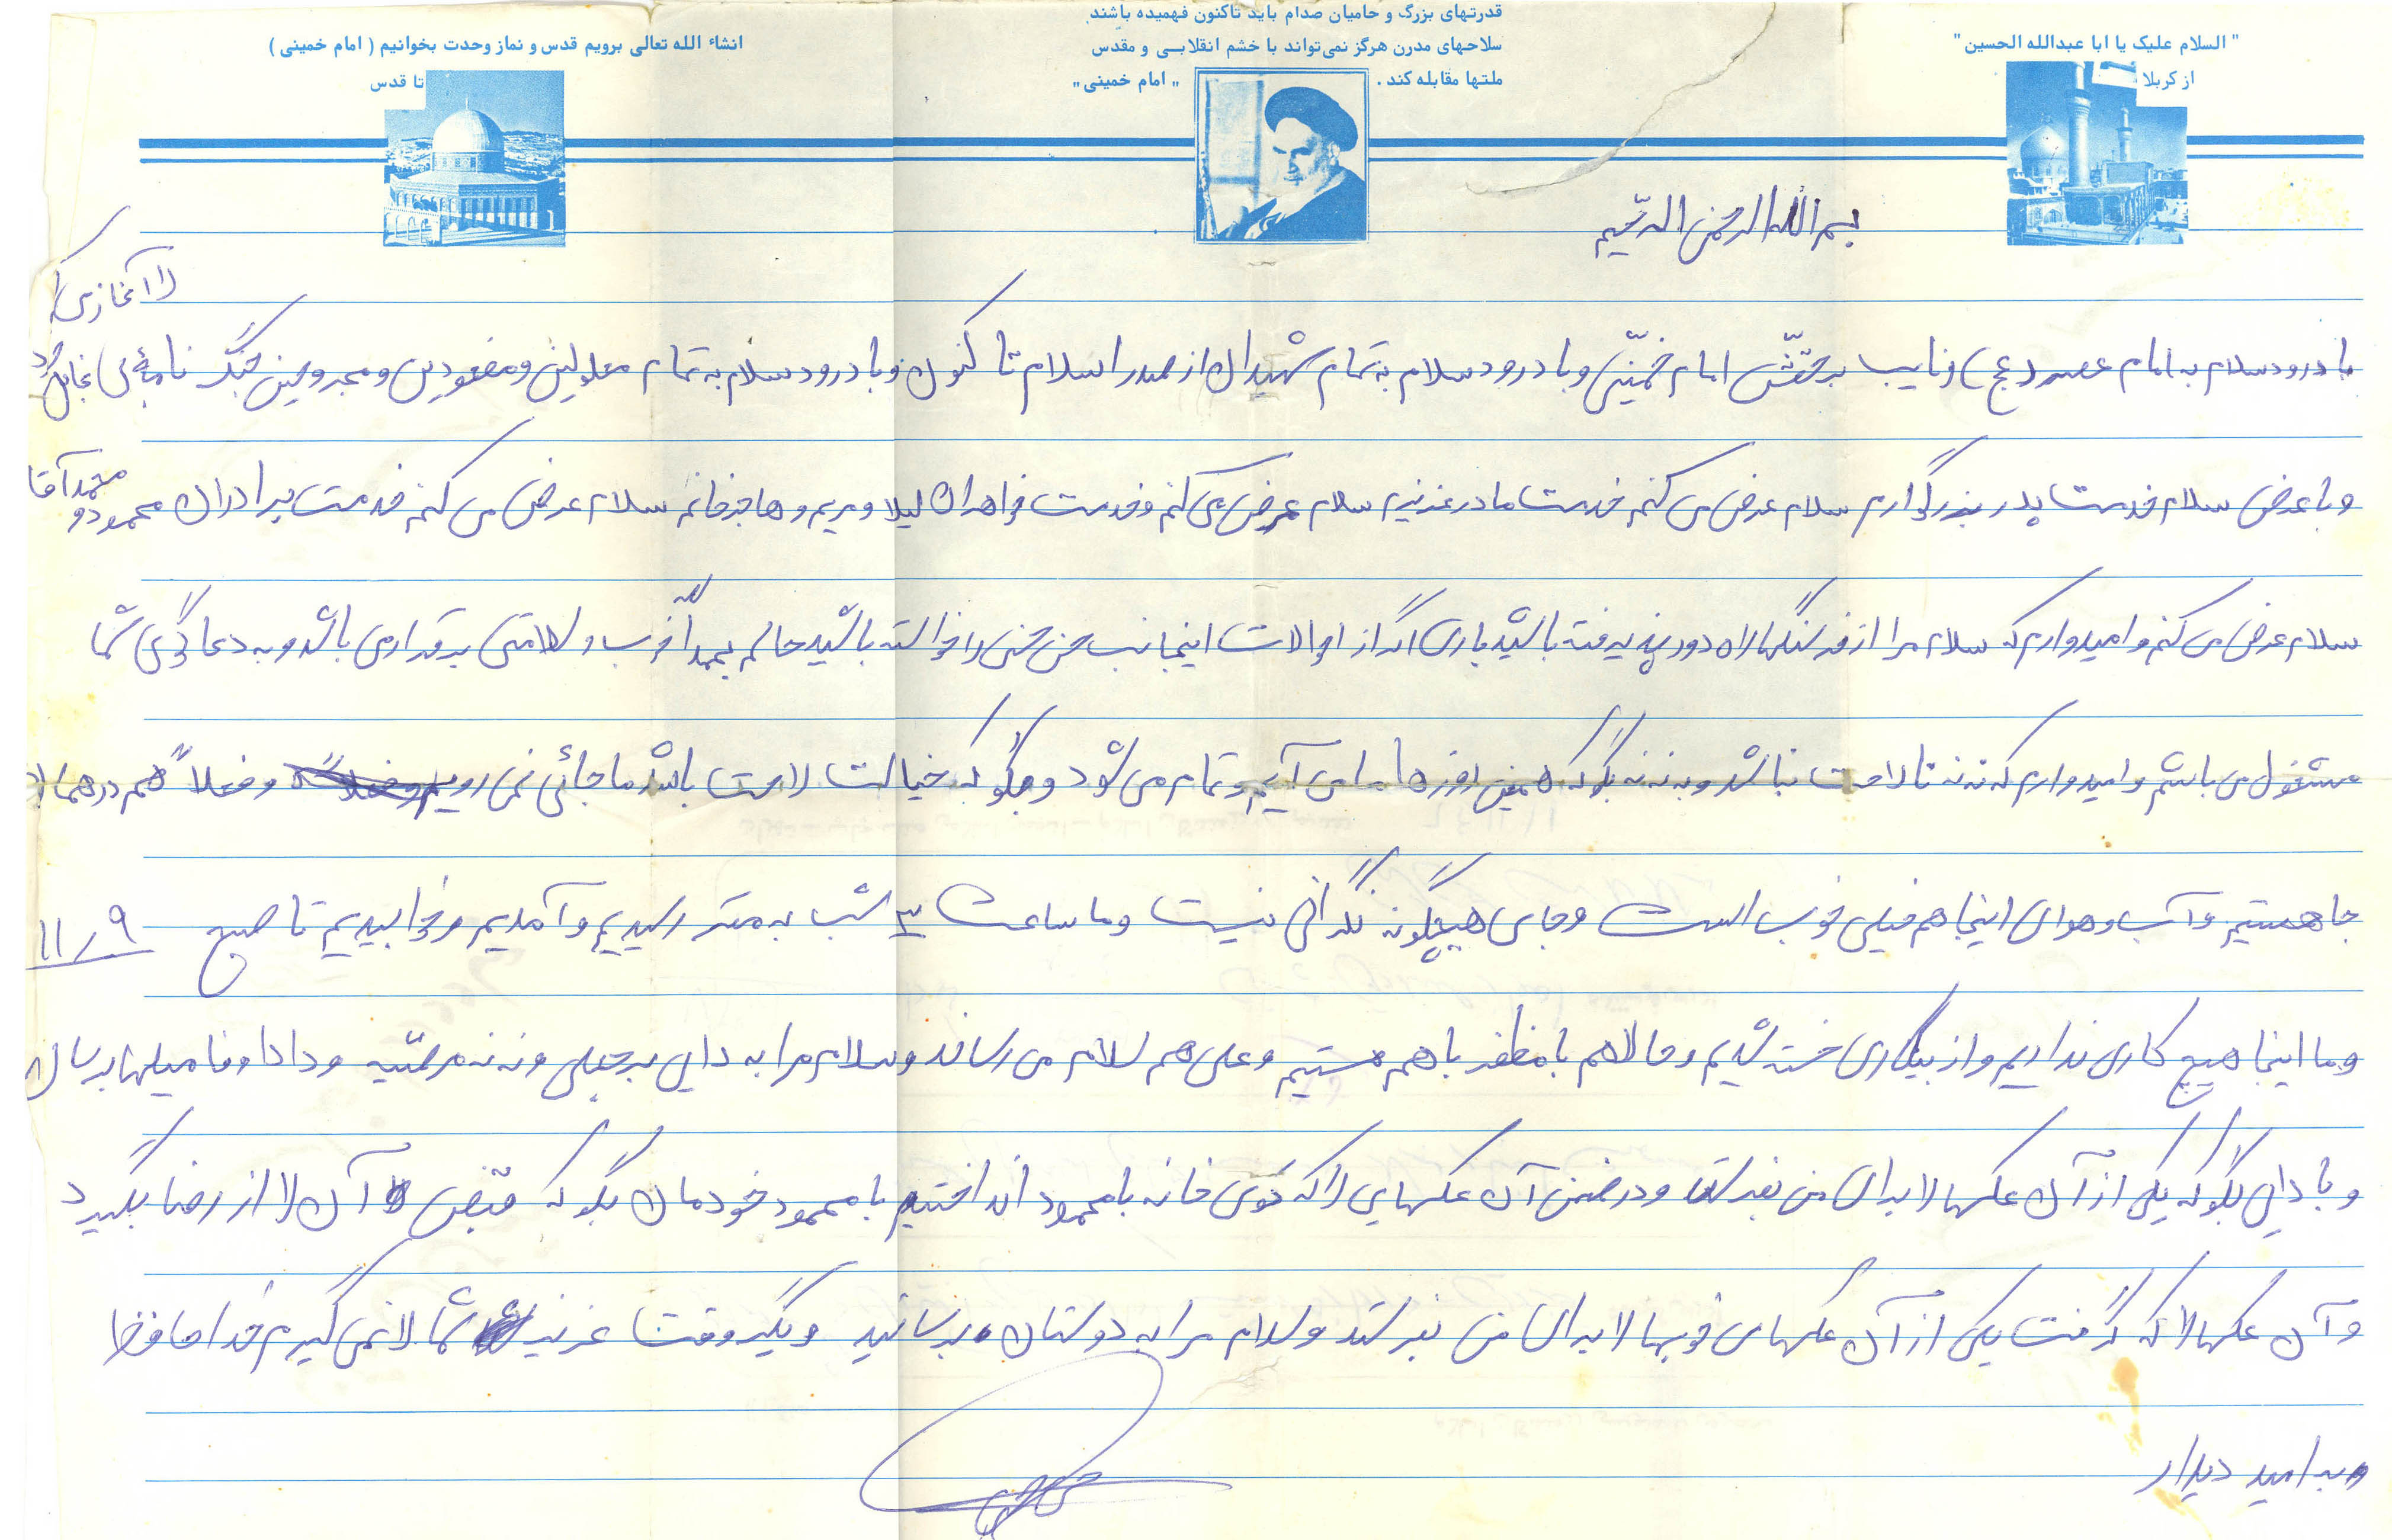 قدرتهای بزرگ و حامیان صدام باید تاکنون فهمیده باشند
سلاحهای مدرن هرگز نمی‌تواند با خشم انقلابی و مقدس
ملتها مقابله کند . " امام خمینی "
" السلام علیک یا ابا عبدالله الحسین "
از کربلا
انشاء الله تعالی برویم قدس و نماز وحدت بخوانیم ( امام خمینی )
تا قدس
بسم الله الرحمن الرحیم
با درود سلام به امام عصر (عج) و نایب برحقش امام خمینی و با درود سلام به تمام شهیدان از صدر اسلام تا کنون و با درود سلام به تمام معلولین و مفقودین و مجروحین جنگ نامه‌ی
را آغاز می‌کنم
و با عرض سلام خدمت پدر بزرگوارم سلام عرض می کنم خدمت مادر عزیزم سلام عرض می کنم و خدمت خواهران لیلا و مریم و هاجر خانم سلام عرض می کنم خدمت برادران محمود و محمد آقا
سلام عرض می کنم و امیدوارم که سلام مرا از فرسنگها راه دور پذیرفته باشید باری اگر از احوالات اینجانب حسن را خواسته باشید حالم بحمدالله خوب و سلامتی برقرار می باشد و به دعاگوی شما
مشغول می باشم و امیدوارم که ننه ناراحت نباشد و به ننه بگو که همین روزها ما می آییم و تمام می شود و بگو که خیالت راحت باشد ما جائی نمی رویم و فعلاً هم در همان
جا هستیم و آب و هوای اینجا هم خیلی خوب است و جای هیچگونه نگرانی نیست و ما ساعت ۳ شب به مقر رسیدیم و آمدیم و خوابیدیم تا صبح ۱۱/۹
و ما اینجا هیچ کاری نداریم و از بیکاری خسته شدیم و حالا هم با مظفر با هم هستیم و علی هم سلام می رساند و سلام مرا به دایی رجبعلی و ننه مرضیه و دادا و فامیلها برسان
و با دایی بگو که یکی از آن عکسها را برای من بفرستد و در ضمن آن عکسهایی را که توی خانه با محمود انداختیم با محمود خودمان بگو که قبض آن را از رضا بگیرد
و آن عکسها را که گرفت یکی از آن عکسهای خوبها را برای من بفرستد و سلام مرا به دوستان برسانید و دیگر وقت عزیز شما را نمی گیرم خداحافظ
به امید دیدار